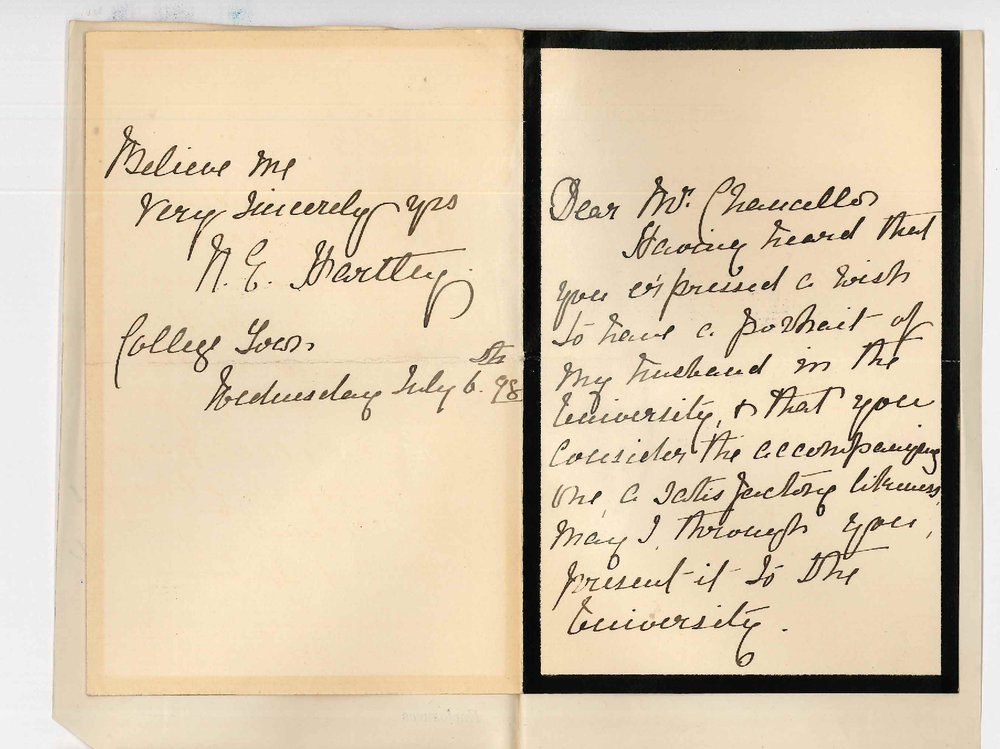 Dear Mr. Chancellor
Having heard that
you expressed a wish
to have a portrait of
my husband in the
University, & that you
consider the accompanying
one, a satisfactory likeness,
may I, through you,
present it to the
University.
Believe me
Very sincerely yrs
N. E. Hartley.
College Town
Wednesday July 6th. 98